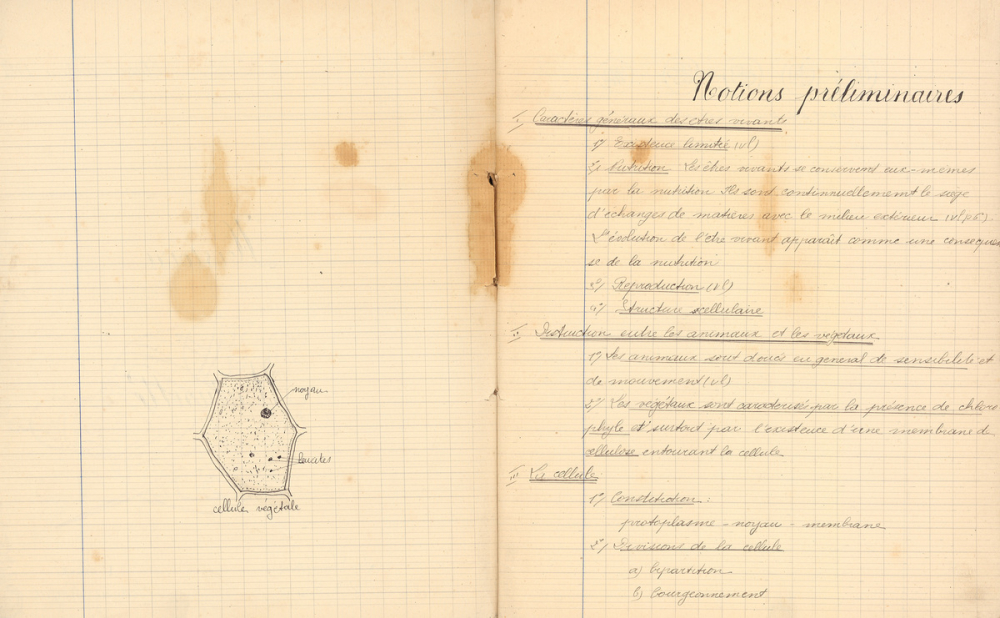 noyau
vacuoles
cellule végétale
Notions préliminaires
I. Caractères généraux des êtres vivants
1°) Existence limitée (vl)
2°) Nutrition Les êtres vivants se conservent eux-mêmes
par la nutrition Ils sont continuellement le sege
d'échanges de matières avec le milieu extérieur (vl p6)
L'évolution de l'être vivant apparaît comme une conséquen
se de la nutrition
3°) Reproduction (vl)
4°) Structure cellulaire
II. Distinction entre les animaux et les végétaux
1°) Les animaux sont doués en général de sensibilité et
de mouvement (vl)
2°) Les végétaux sont caractérisés par la présence de chloro
phyle et surtout par l'existence d'une membrane de
cellulose entourant la cellule
III. La cellule
1°) Constitution :
protoplasme - noyau - membrane
2°) Divisions de la cellule
a) bipartition
b) bourgeonnement